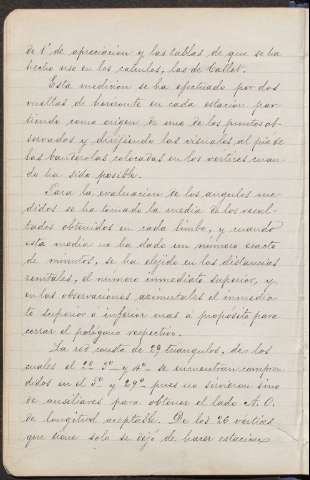 de 1' de apreciacion y las tablas de que se ha
hecho uso en los calculos, las de Callet.
Esta medicion se ha efectuado por dos
vueltas de horizonte en cada estacion par-
tiendo como origen de uno de los puntos ob-
servados y dirijiendo las visuales al pie de
las banderolas colocadas en los vertices cuan-
do ha sido posible.
Para la evaluacion de los angulos me-
didos se ha tomado la media de los resul-
tados obtenidos en cada limbo, y cuando
esta media no ha dado un número exacto
de minutos, se ha elejido en las distancias
zenitales, el número inmediato superior, y
en las observaciones azimutales el inmedia-
to superior o inferior mas a proposito para
cerrar el poligono respectivo.
La red consta de 29 triangulos, de los
cuales el 2º 3º y 4º se encuentran compren-
didos en el 5º y 29º pues no sirvieron sino
de auxiliares para obtener el lado A. O.
de longitud aceptable. De los 26 vertices
que tiene solo se dejó de hacer estacion